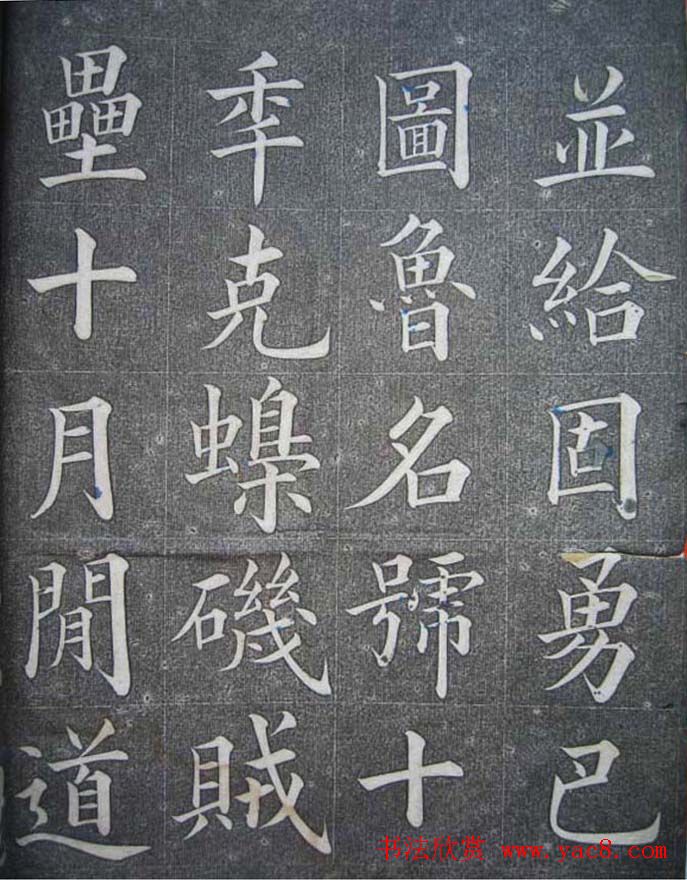 並給固勇巴
圖魯名號十
秊克螝磯賊
壘十月間道
书法欣赏 www.yac8.com